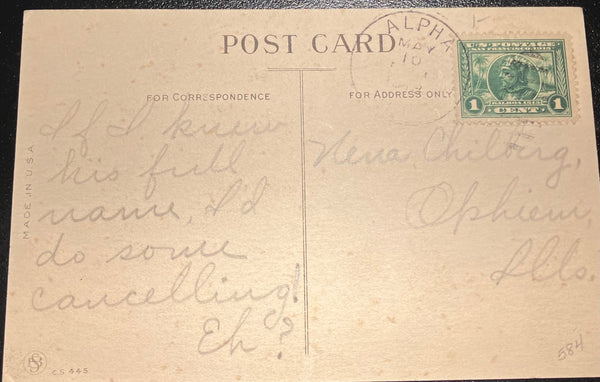 POST CARD
ALPHA
MAY
10
U.S. POSTAGE
SAN FRANCISCO 1915
BALBOA 1513
1 CENT 1
FOR CORRESPONDENCE
FOR ADDRESS ONLY
If I knew
his full
name, I'd
do some
cancelling!
Eh?
Nena Chilberg,
Ophiem,
Ills.
MADE IN U.S.A.
C.S. 445
584